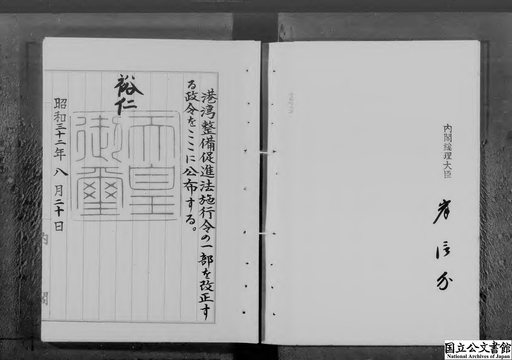 港湾整備促進法施行令の一部を改正す
る政令をここに公布する。
裕仁
天皇
御璽
昭和三十二年八月二十日
内閣
内閣総理大臣
岸信介
国立公文書館
National Archives of Japan